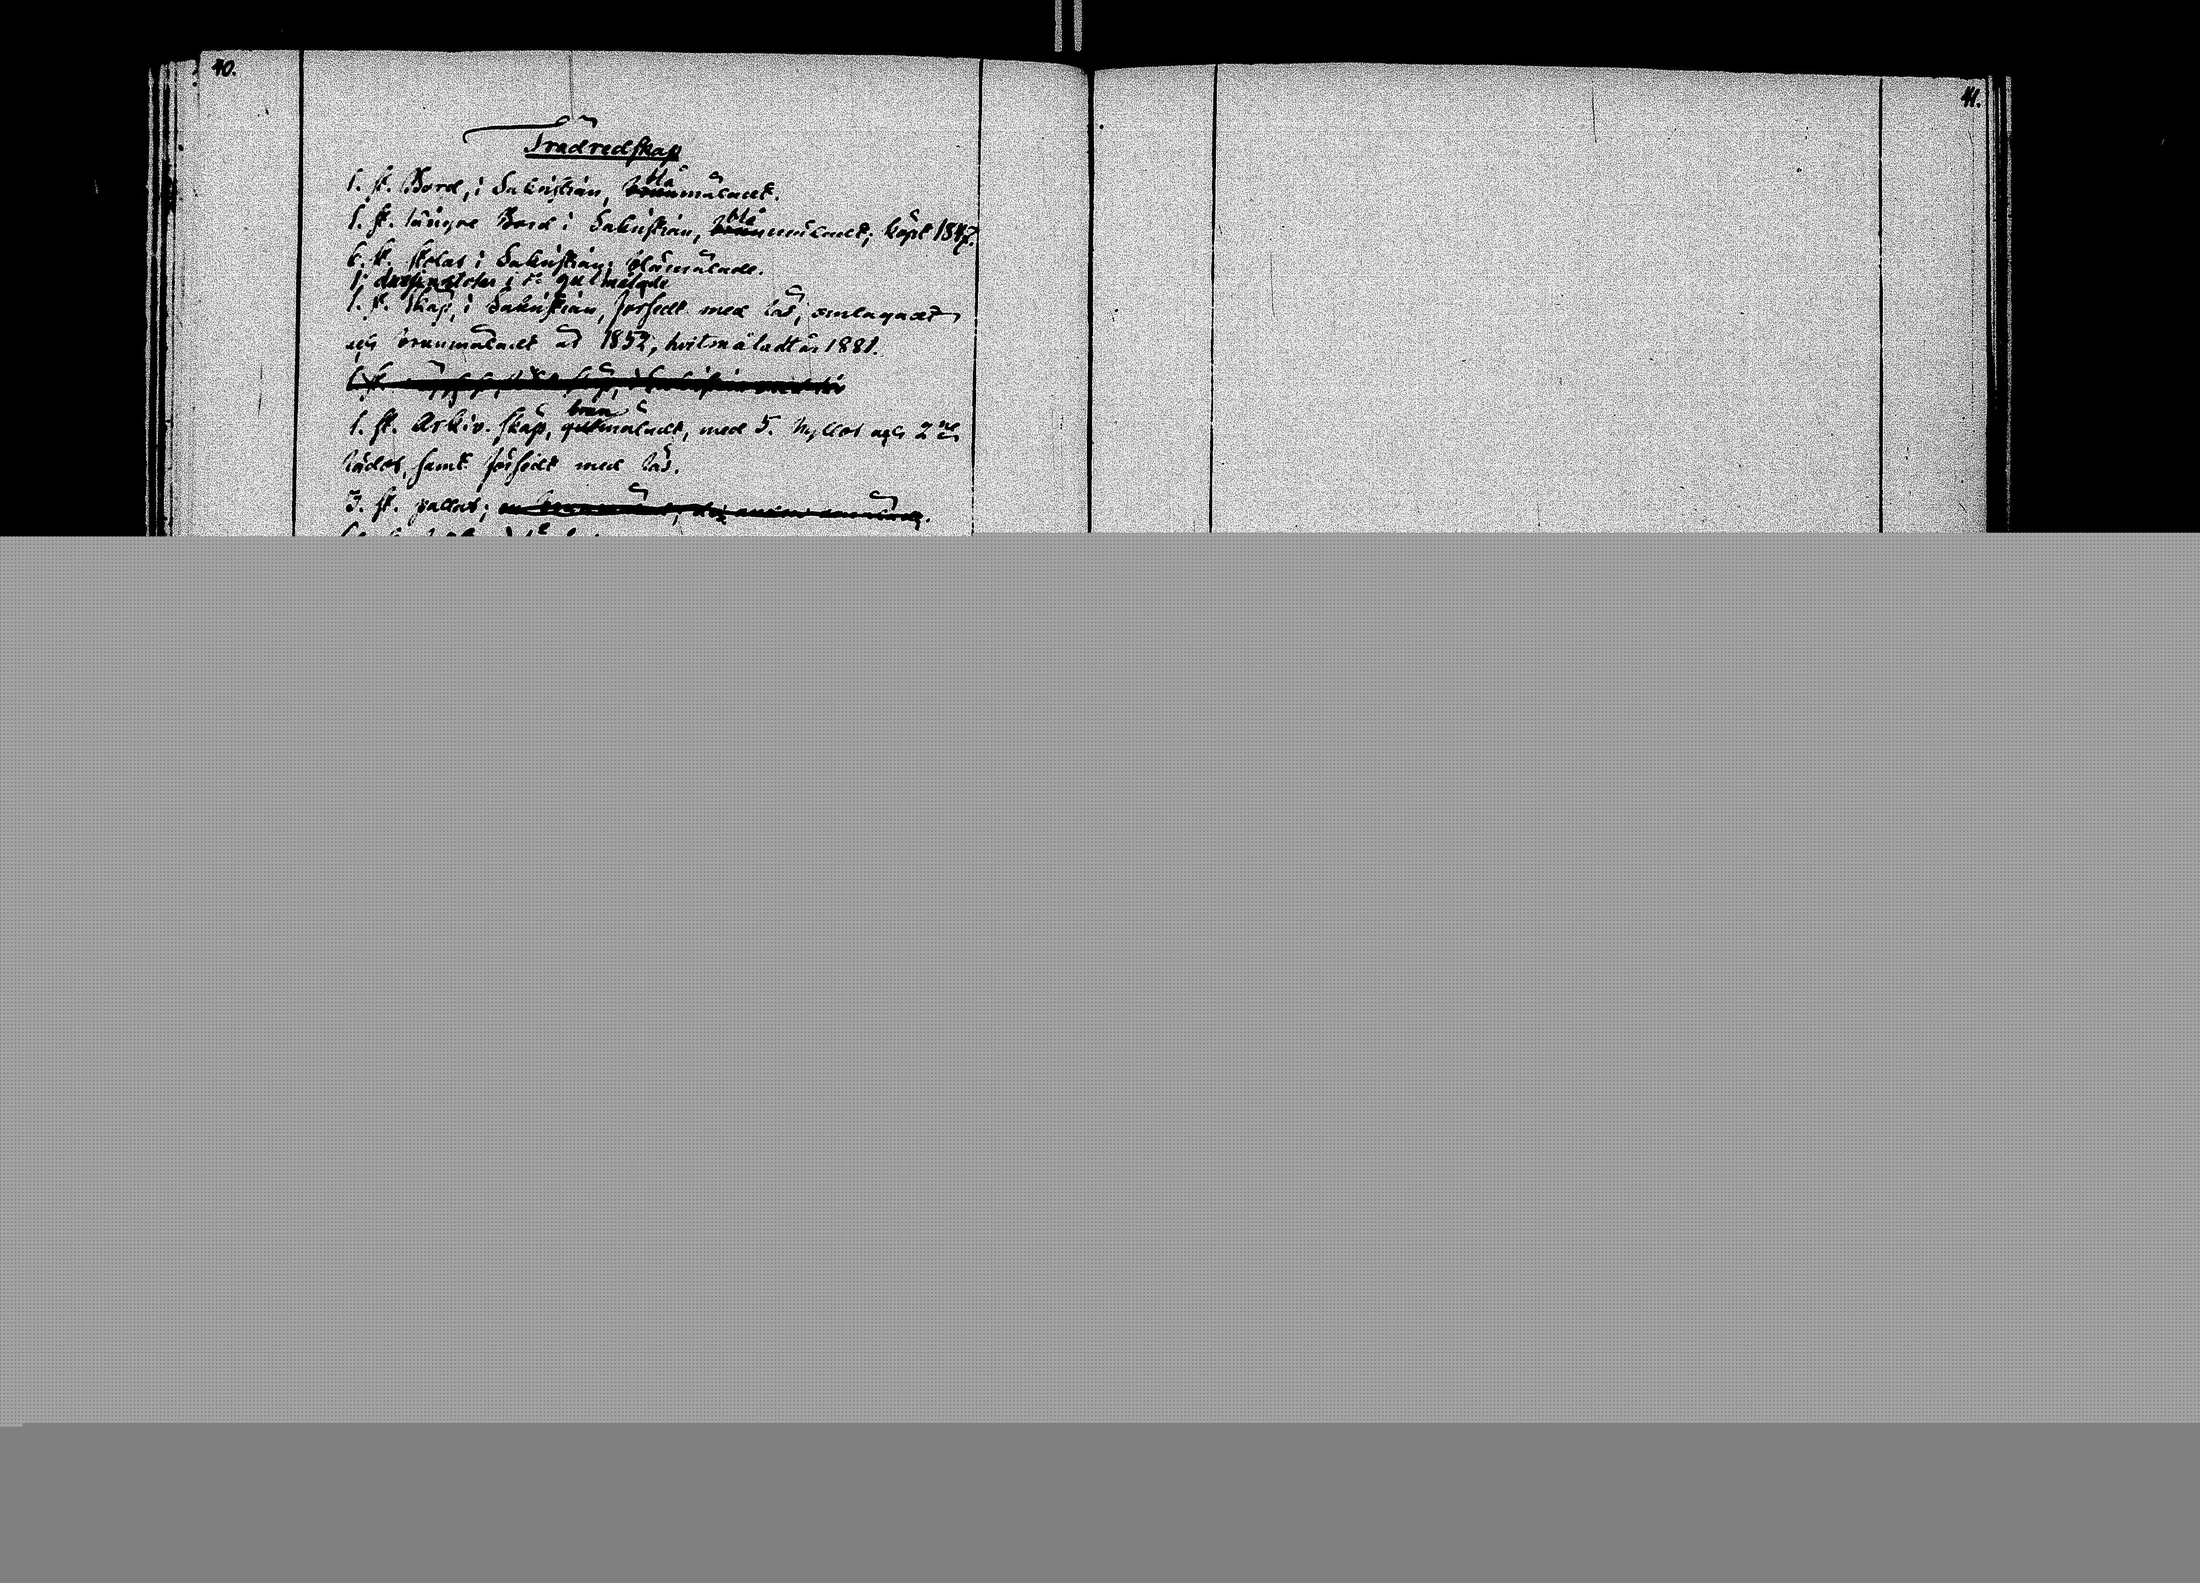 40.
41.
Trädredskap
1. st. Bord, i Sakristian, blå brunmåladt.
1. st. längre Bord i Sakristian, blå brunmåladt; köpt 1847.
6. st. stolar i Sakristian; blåmålade.
1, dussin stolar i do gulmålade
1. st. skåp, i Sakristian, försedt med lås, omlagadt
och brunmåladt år 1852, hvitmåladt år 1881.
1. st.
1. st. Arkiv-skåp, brun gulmåladt, med 5. hyllor och 2ne
lådor, samt försedt med lås.
3. st. pallar;